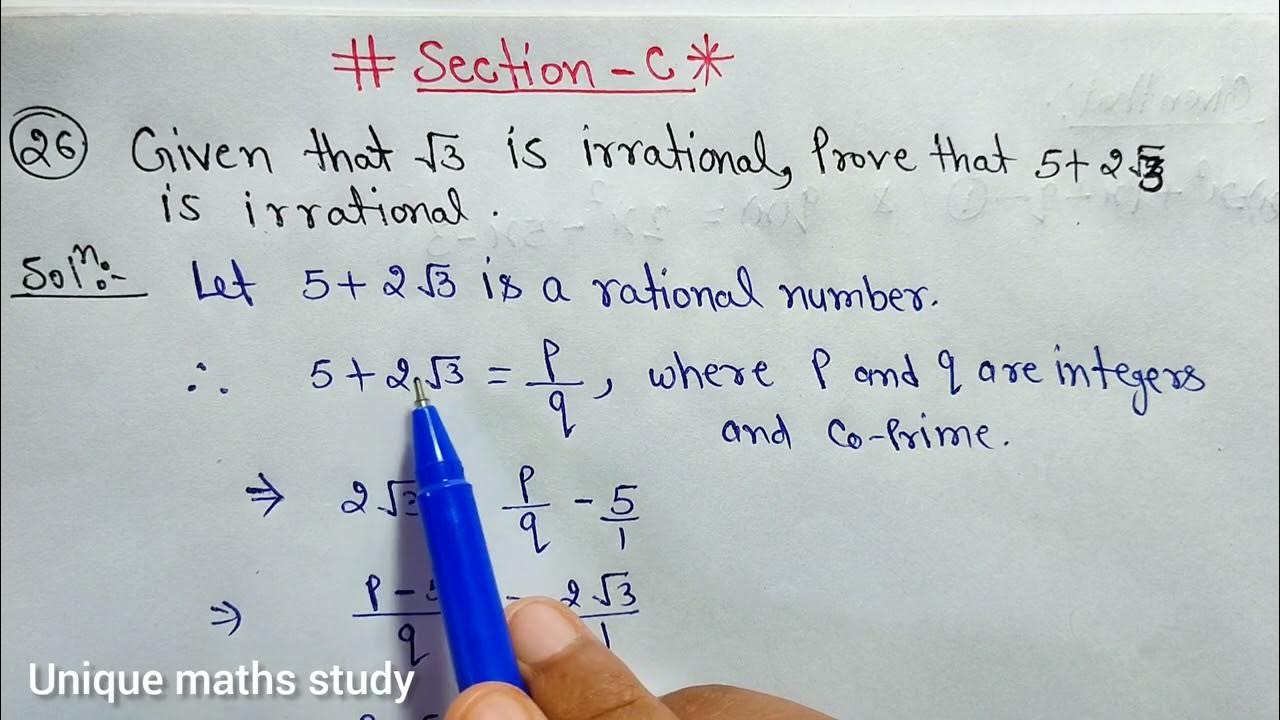 # Section - C *
26 Given that √3 is irrational, Prove that 5 + 2√3
is irrational.
Solⁿ:- Let 5 + 2√3 is a rational number.
∴ 5 + 2√3 = p/q, where p and q are integers
and Co-Prime.
⇒ 2√3 p/q - 5/1
⇒ p - /q = 2√3/1
Unique maths study